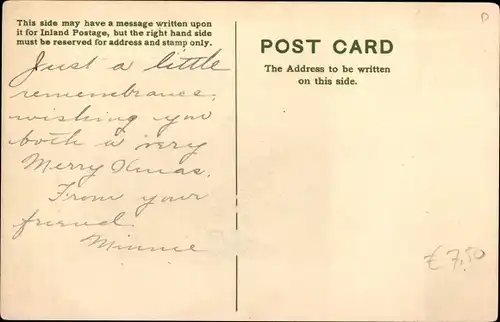 This side may have a message written upon
it for Inland Postage, but the right hand side
must be reserved for address and stamp only.
Just a little
remembrance,
wishing you
both a very
Merry Xmas.
From your
friend.
Minnie
POST CARD
The Address to be written
on this side.
€ 7,50